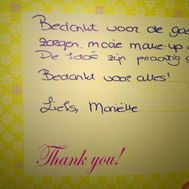 Bedankt voor de goe
zorgen, mooie make-up e
De foto's zijn prachtig g
Bedankt voor alles!
Liefs, Mariëlle
Thank you!